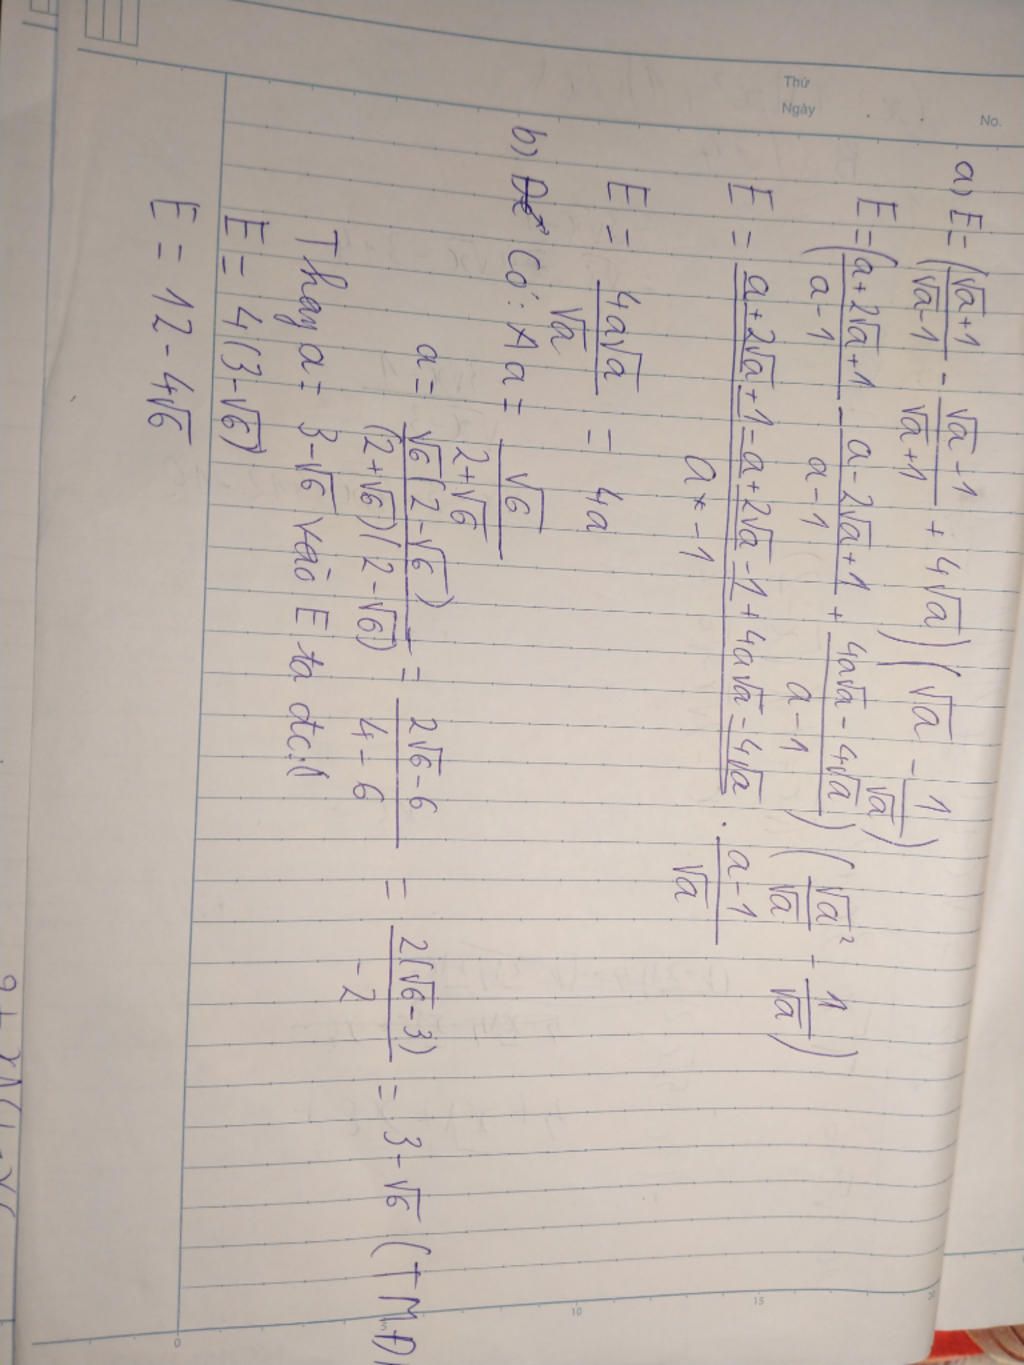 Thứ
Ngày
No.
a) E = (√a+1/√a-1 - √a-1/√a+1 + 4√a)(√a - 1/√a)
E = (a+2√a+1/a-1 - a-2√a+1/a-1 + 4a√a-4√a/a-1)(√a²/√a - 1/√a)
E = a+2√a+1-a+2√a-1+4a√a-4√a/a-1 · a-1/√a
E = 4a√a/√a = 4a
b) Có: a = √6/2+√6
a = √6(2-√6)/(2+√6)(2-√6) = 2√6-6/4-6 = 2(√6-3)/-2 = 3-√6 (TMĐ
Thay a = 3-√6 vào E ta đc:
E = 4(3-√6)
E = 12-4√6
0
5
10
15